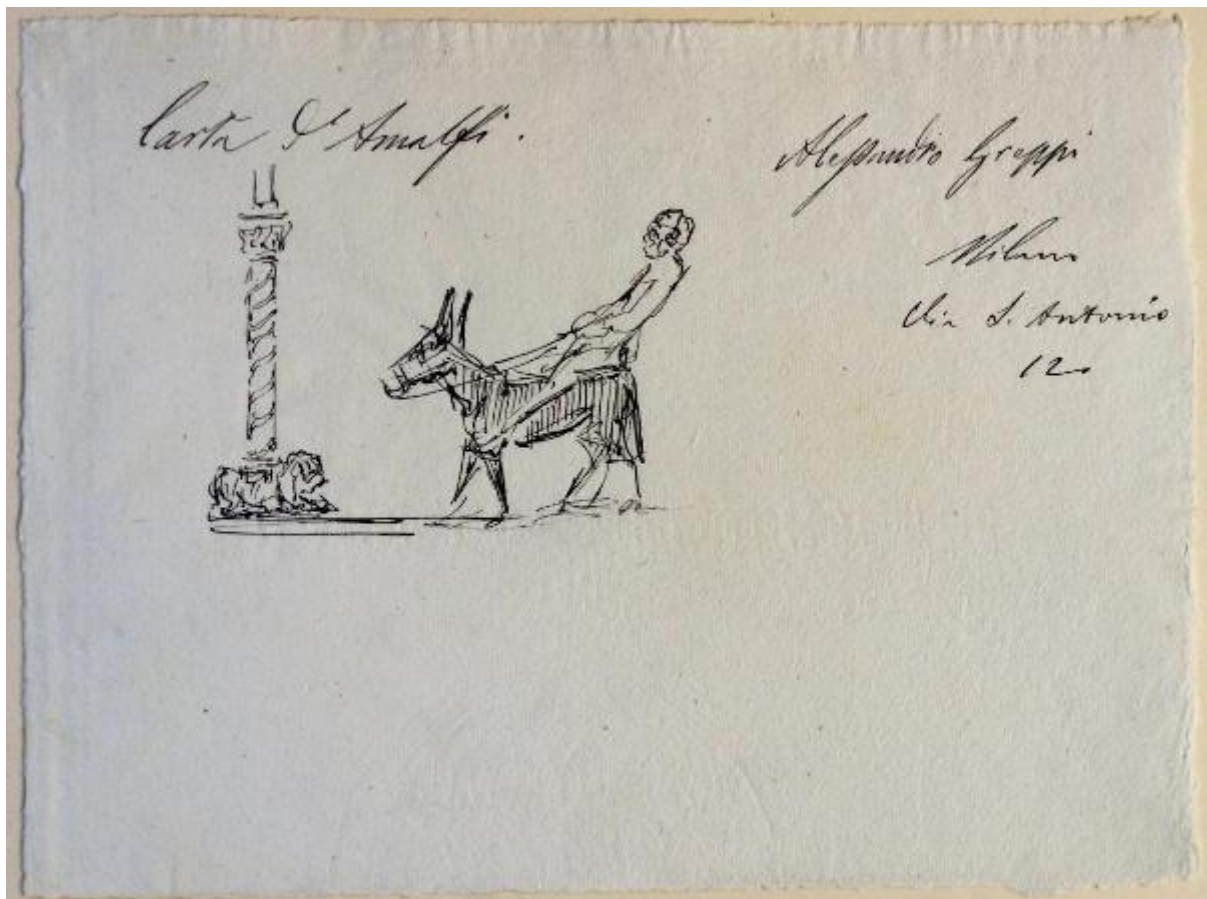 Carta d'Amalfi.
Alessandro Greppi
Milano
Via S. Antonio
12